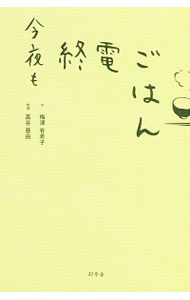 今夜も
終電ごはん
梅津有希子
高谷亜由
幻冬舎